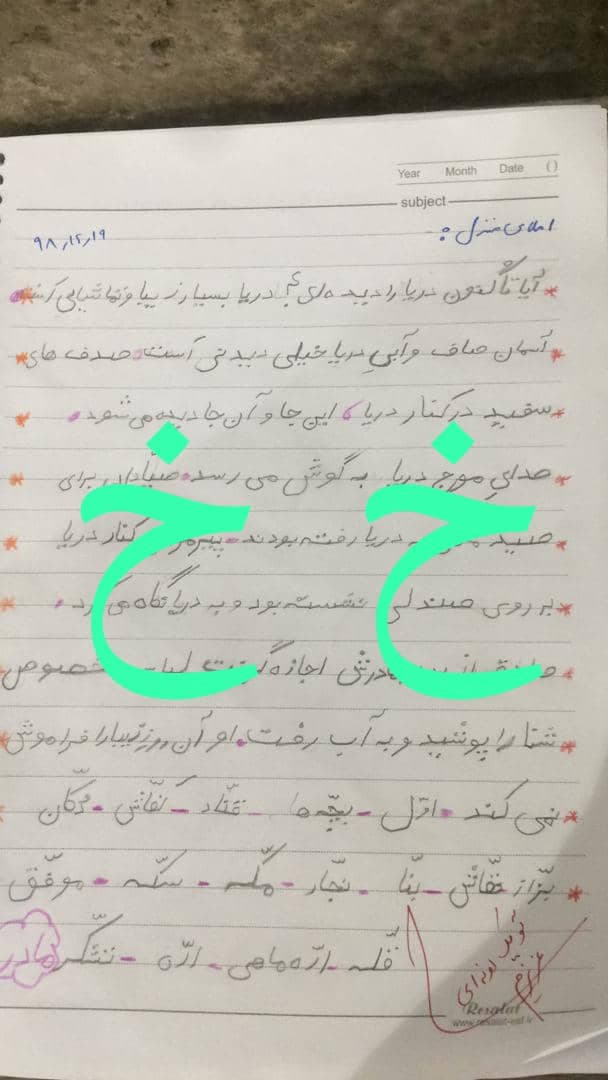 Year Month Date ( )
subject
املای منزل:
۹۸/۱۲/۱۹
آیا تاکنون دریا را دیده ای؟ دریا بسیار زیبا و تماشایی است
آسمان صاف و آبی دریا خیلی دیدنی است. صدف های
سفید در کنار دریا، این جا و آن جا دیده می شود.
صدای موج دریا به گوش می رسد. صیّادان برای
صید دریا رفته بودند. کنار دریا
بر روی صندلی نشسته بود و به دریا نگاه می کرد.
اجازه گرفت
شنا را پوشید و به آب رفت. او آن روز زیبا را فراموش
نمی کند. اوّل - بچّه ها - نقّاش
بزّاز خفّاش - بنّا - نجّار - مکّه - سکّه - موفّق
قلّه - ارّه ماهی - ارّه - تشکّر مادر
خ خ
Resalat